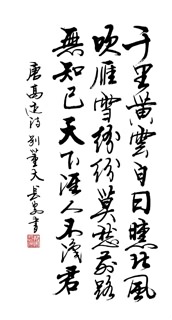 千里黄雲白日曛北風
吹雁雪紛紛莫愁前路
無知己天下誰人不識君
唐高适詩别董大